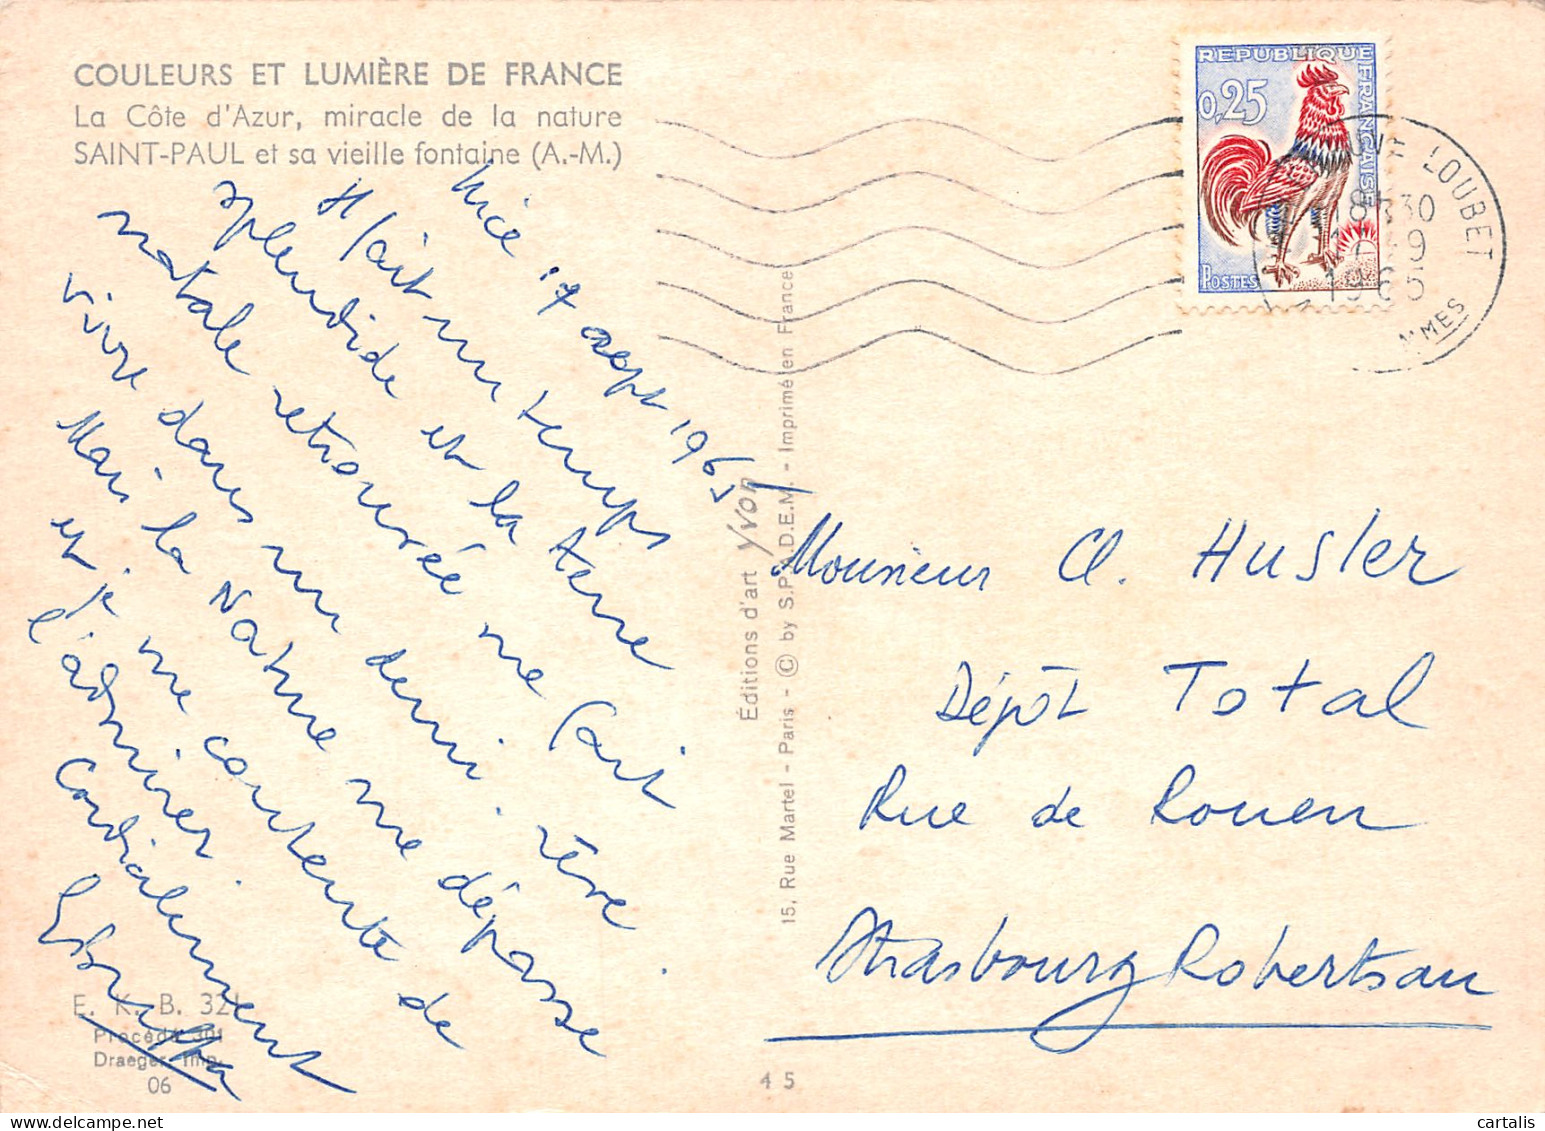 COULEURS ET LUMIÈRE DE FRANCE
La Côte d'Azur, miracle de la nature
SAINT-PAUL et sa vieille fontaine (A.-M.)
Nice 17 sept 1965
Il fait un temps
splendide et la terre
natale retrouvée me fait
vivre dans un demi-rêve.
Mais la Nature me dépasse
et je me contente de
l'admirer.
Cordialement
E. K. B. 32
Procédé 301
Draeger Imp.
06
Éditions d'art Yvon
15, Rue Martel - Paris - © by S.P.A.D.E.M. - Imprimé en France
45
REPUBLIQUE FRANÇAISE
0,25
POSTES
LOUBET
18H30
1965
Monsieur Cl. Husler
Dépôt Total
Rue de Rouen
Strasbourg Robertsau
cartalis
delcampe.net